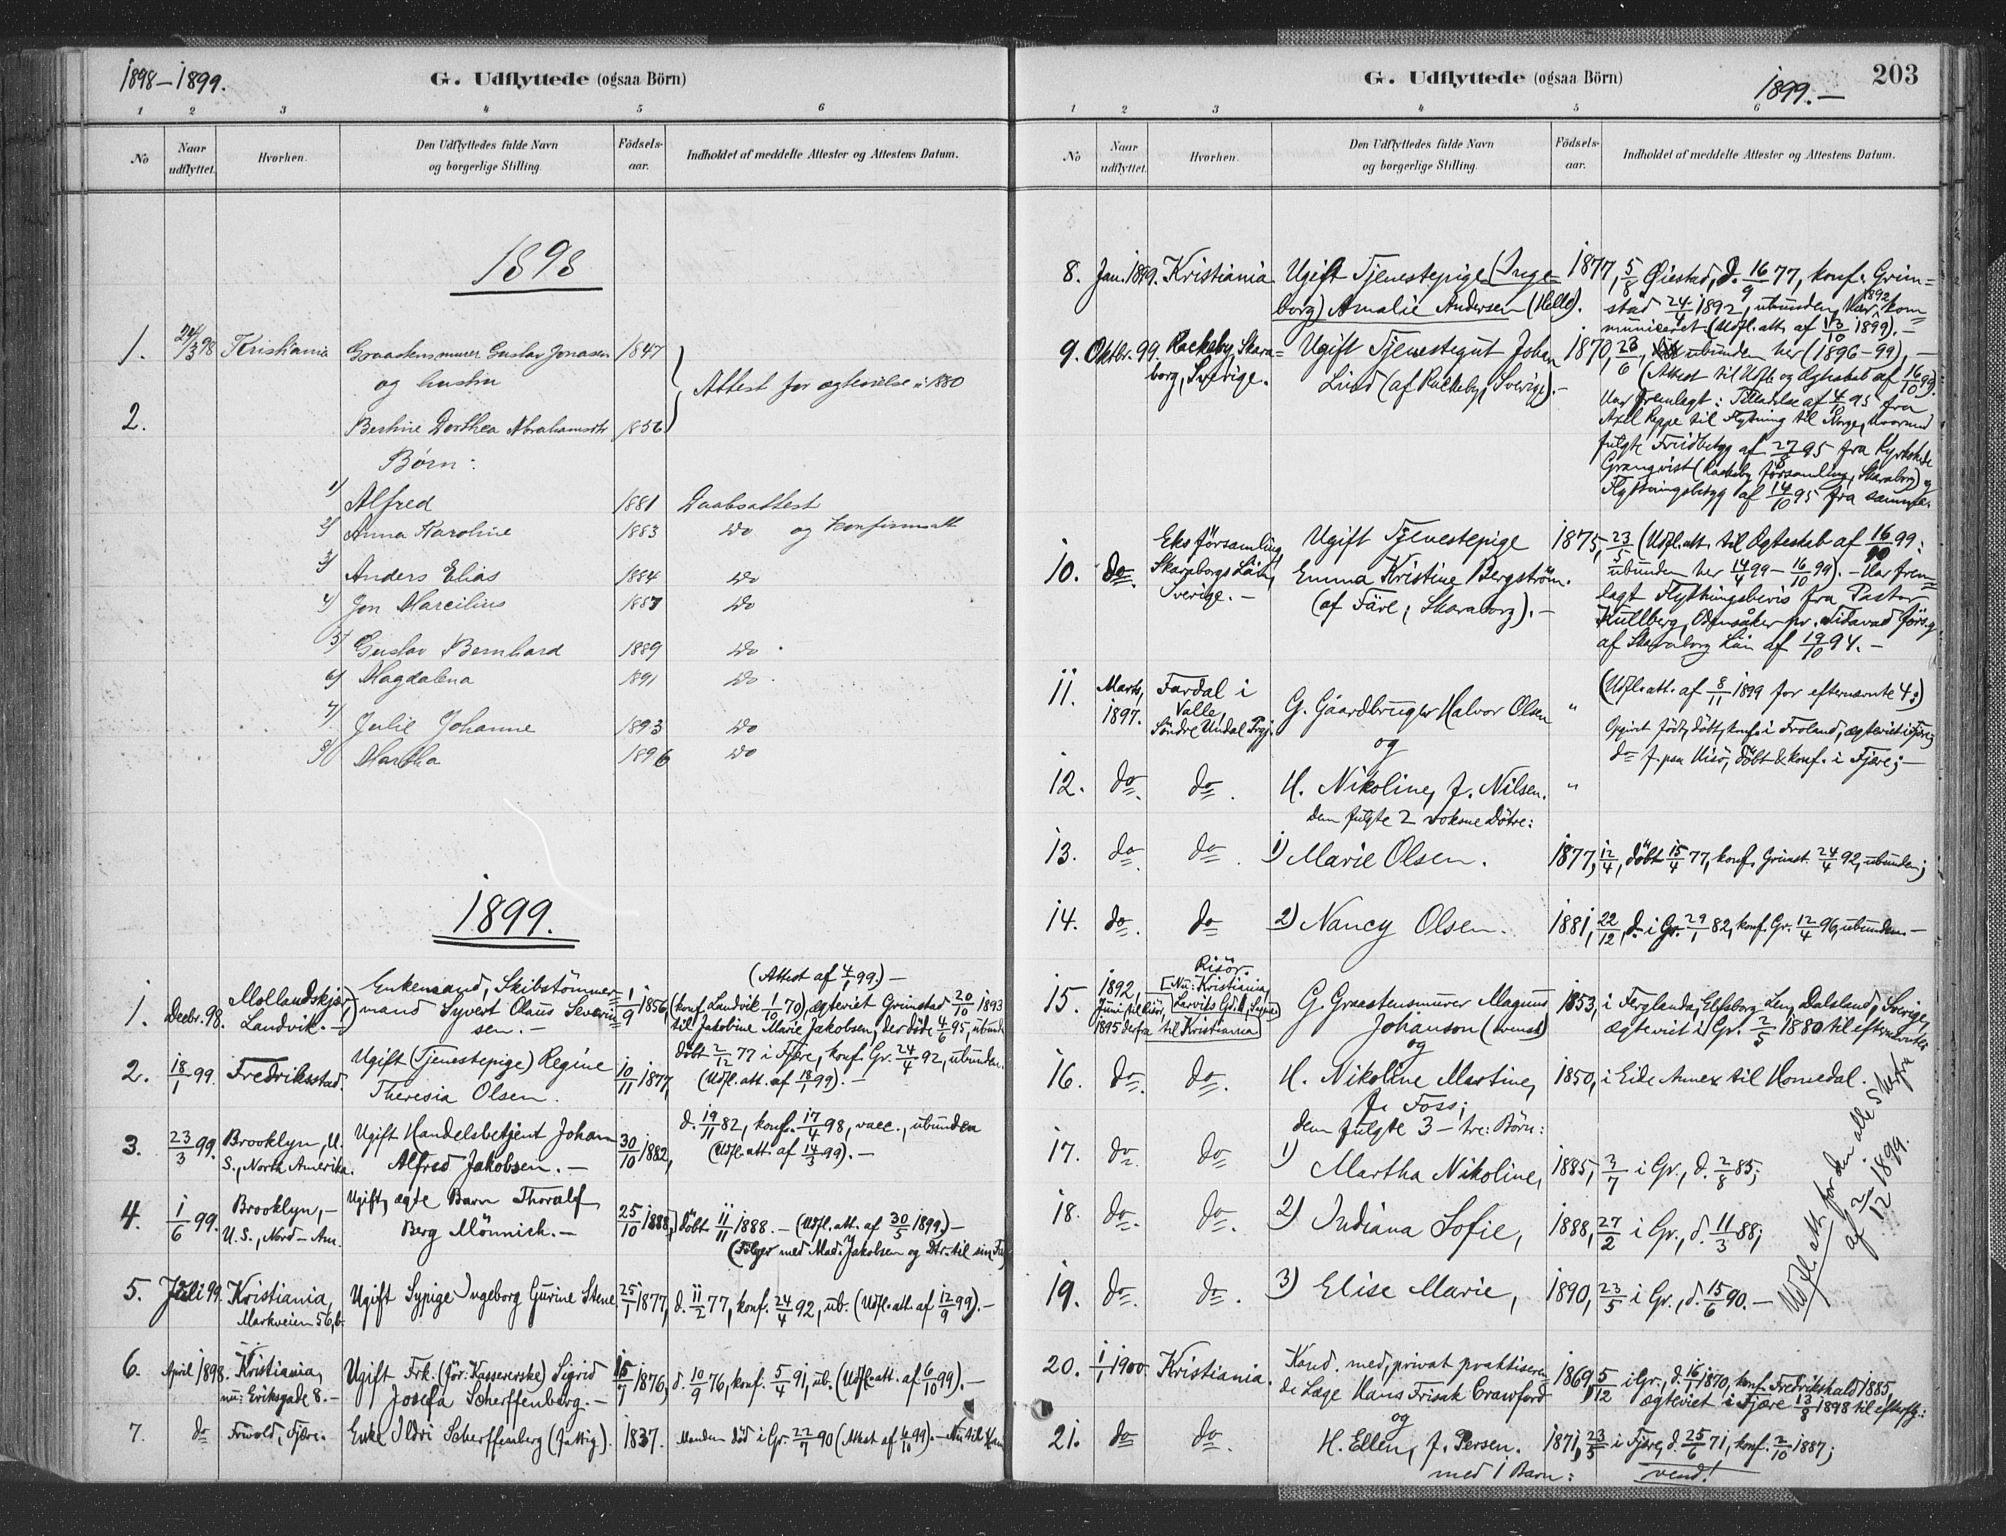 1898–1899.
G. Udflyttede (ogsaa Börn)
1 2 3 4 5 6
No
Naar udflyttet.
Hvorhen.
Den Udflyttedes fulde Navn og borgerlige Stilling.
Födsels-aar.
Indholdet af meddelte Attester og Attestens Datum.
1898
1. 24/3 98 Kristiania Graastensmurer Gustav Jonassen 1847
og hustru
Attest for ægtevielse i 1880
2. Berthine Dorthea Abrahamsdtr 1856
Børn:
1) Alfred 1881 Daabsattest
2) Anna Karoline 1883 do og Konfirmatt
3) Anders Elias 1884 do
4) Jon Marcilius 1887 do
5) Gustav Bernhard 1889 do
6) Magdalena 1891 do
7) Julie Johanne 1893 do
8) Martha 1896 do
1899.
(Attest af 4/1 99.) –
1. Decbr. 98. Mollandskjær, Enkemand, Skibstömmer- 1/9 1856, (konf. Landvik 1/10 70), ægteviet Grimstad 20/10 1893
Landvik. – mand Syvert Olaus Severin- til Jakobine Marie Jakobsen, der döde 4/6 95, ubunden
sen. –
2. 18/1 99. Fredriksstad. Ugift (Tjenestepige) Regine 10/11 1877, döbt 2/12 77 i Fjære, konf. Gr. 24/4 92, ubunden.
Theresia Olsen. (Udfl. att. af 18/1 99). –
3. 23/3 99. Brooklyn, U. Ugift Handelsbetjent Johan 30/10 1882, d. 19/11 82, konf. 17/4 98, vacc., ubunden
S., North Amerika. Alfred Jakobsen. – (Udfl. att. af 14/3 99). –
4. 1/6 99. Brooklyn, – Ugift, ægte Barn Thoralf 25/10 1888, döbt 11/11 1888. – (Udfl. att. af 30/5 1899.) –
U. S., Nord-Am. Berg Mönnich. – (Fölger med Mad. Jakobsen og Dtr. til sin Fa)
5. Juli 99. Kristiania, Ugift Sypige Ingeborg Gurine Stene 25/1 1877, d. 11/2 77, konf. 24/4 92, ub. (Udfl. att. af 12/9 99). –
Markveien 56, b.
6. April 1898. Kristiania, Ugift Frk. (för. Kassererske) Sigrid 15/7 1876, d. 10/9 76, konf. 5/4 91, ub. (Udfl. att. af 6/10 99). –
nu: Eriksgade 8. – Josefa Scherffenberg. –
7. do Frivold, Fjære. Enke Ildri Scherffenberg (fattig). 1837. Manden död i Gr. 22/7 90 (Attest af 6/10 99). – Nu til
G. Udflyttede (ogsaa Börn)
1899. –
203
1 2 3 4 5 6
No
Naar udflyttet.
Hvorhen.
Den Udflyttedes fulde Navn og borgerlige Stilling.
Födsels-aar.
Indholdet af meddelte Attester og Attestens Datum.
8. Jan. 1899. Kristiania Ugift Tjenestepige (Inge- 1877, 5/8 Øiestad, d. 16/9 77, konf. Grim-
borg) Amalie Andersen (Helle). stad 24/4 1892, ubunden, har 1892 kom-
municeret. (Udfl. att. af 13/10 1899). –
9. Oktbr. 99. Rackeby, Skara- Ugift Tjenestegut Johan 1870, 23/6, ubunden her (1896–99), –
borg, Sverige. Lind (af Rackeby, Sverige). – (Attest til Udfl. og Ægteskab af 16/10 99).
Har fremlagt: Tilladelse af 4/10 95 fra
Axel Reppe til Flytning til Norge, hvormed
fulgte Fridbetyg af 27/8 95 fra Kyrkoh.
Granqvist (Rackeby församling, Skaraborg) og
Flytningsbetyg af 14/10 95 fra samme.
10. do. Eks församling Ugift Tjenestepige 1875, 23/5 (Udfl. att. til Ægteskab af 16/10 99:
Skaraborgs Län, Emma Kristine Bergström. ubunden her 14/4 99 – 16/10 99). – Har frem-
Sverige. – (af Färe, Skaraborg). – lagt Flytningsbevis fra Pastor
Kullberg, Odensåker pr. Tidavad förs.
af Skaraborg Län af 19/10 94. –
11. Marts, 1897. Fardal i Valle, Söndre Undal Prgj. G. Gaardbruger Halvor Olsen " (Udfl. att. af 8/11 1899 for efternævnte 4:)
og Opgivet födt, döbt, konf. i Froland, ægteviet i Fjære;
do f. paa Hisö, döbt & konf. i Fjære; –
12. do. do. H. Nikoline, f. Nilsen. "
dem fulgte 2 voksne Dötre:
13. do. do. 1) Marie Olsen. 1877, 12/4, döbt 15/4 77, konf. Grimst. 24/4 92, ubunden;
14. do. do 2) Nancy Olsen. 1881, 22/12, d. i Gr. 29/1 82, konf. Gr. 12/4 96, ubunden. –
15. 1892 Juni til Risör, 1895 derfra Risör. [Nu: Kristiania, til Kristiania G. Graastensmurer Magnus 1853, i Ferglanda, Elfsborg Len, Dalsland, Sverige,
Johanson (svensk) ægteviet i Gr. 2/5 1880 til efternævnte
og
16. do. do. H. Nikoline Martine, 1850, i Eide Annex til Homedal.
f. Foss;
dem fulgte 3 – tre: Börn:
17. do. do 1) Martha Nikoline, 1885, 3/7 i Gr., d. 2/8 85;
18. do. do. 2) Indiana Sofie, 1888, 27/2 i Gr., d. 11/3 88;
19. do. do. 3) Elise Marie, 1890, 23/5 i Gr., d. 15/6 90. –
Udfl. att. for dem alle 5 herfra
af 2/12 1899.
20. 1/1 1900 Kristiania. Kand. med., privat praktiseren- 1869, 5/12 i Gr., d. 16/1 1870, konf. Fredrikshald 1885,
de Læge Hans Frisak Crawford ægteviet i Fjære 13/8 1898 til efterfg.:
og
21. do do. H. Ellen, f. Persen. 1871, 23/5 i Fjære, d. 25/6 71, konf. 2/10 1887;
med 1 Barn: vend!